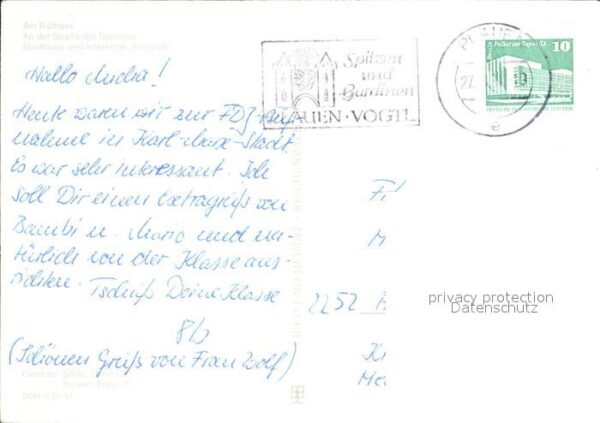 Am Rathaus
An der Straße der Nationen
Stadthalle und Interhotel „Kongreß“
Hallo Micha!
Heute waren wir zur FDJ-Auf-
nahme in Karl-Marx-Stadt.
Es war sehr interessant. Ich
soll Dir einen Extragruß von
Bambi u. Mario und na-
türlich von der Klasse aus-
richten. Tschüß Deine Klasse
8b
(Schönen Gruß von Frau Wolf)
Spitzen
und
Gardinen
PLAUEN · VOGTL
PLAUEN
27
a
10
Berlin, Palast der Republik
DDR
2252
privacy protection
Datenschutz
BILD UND HEIMAT REICHENBACH